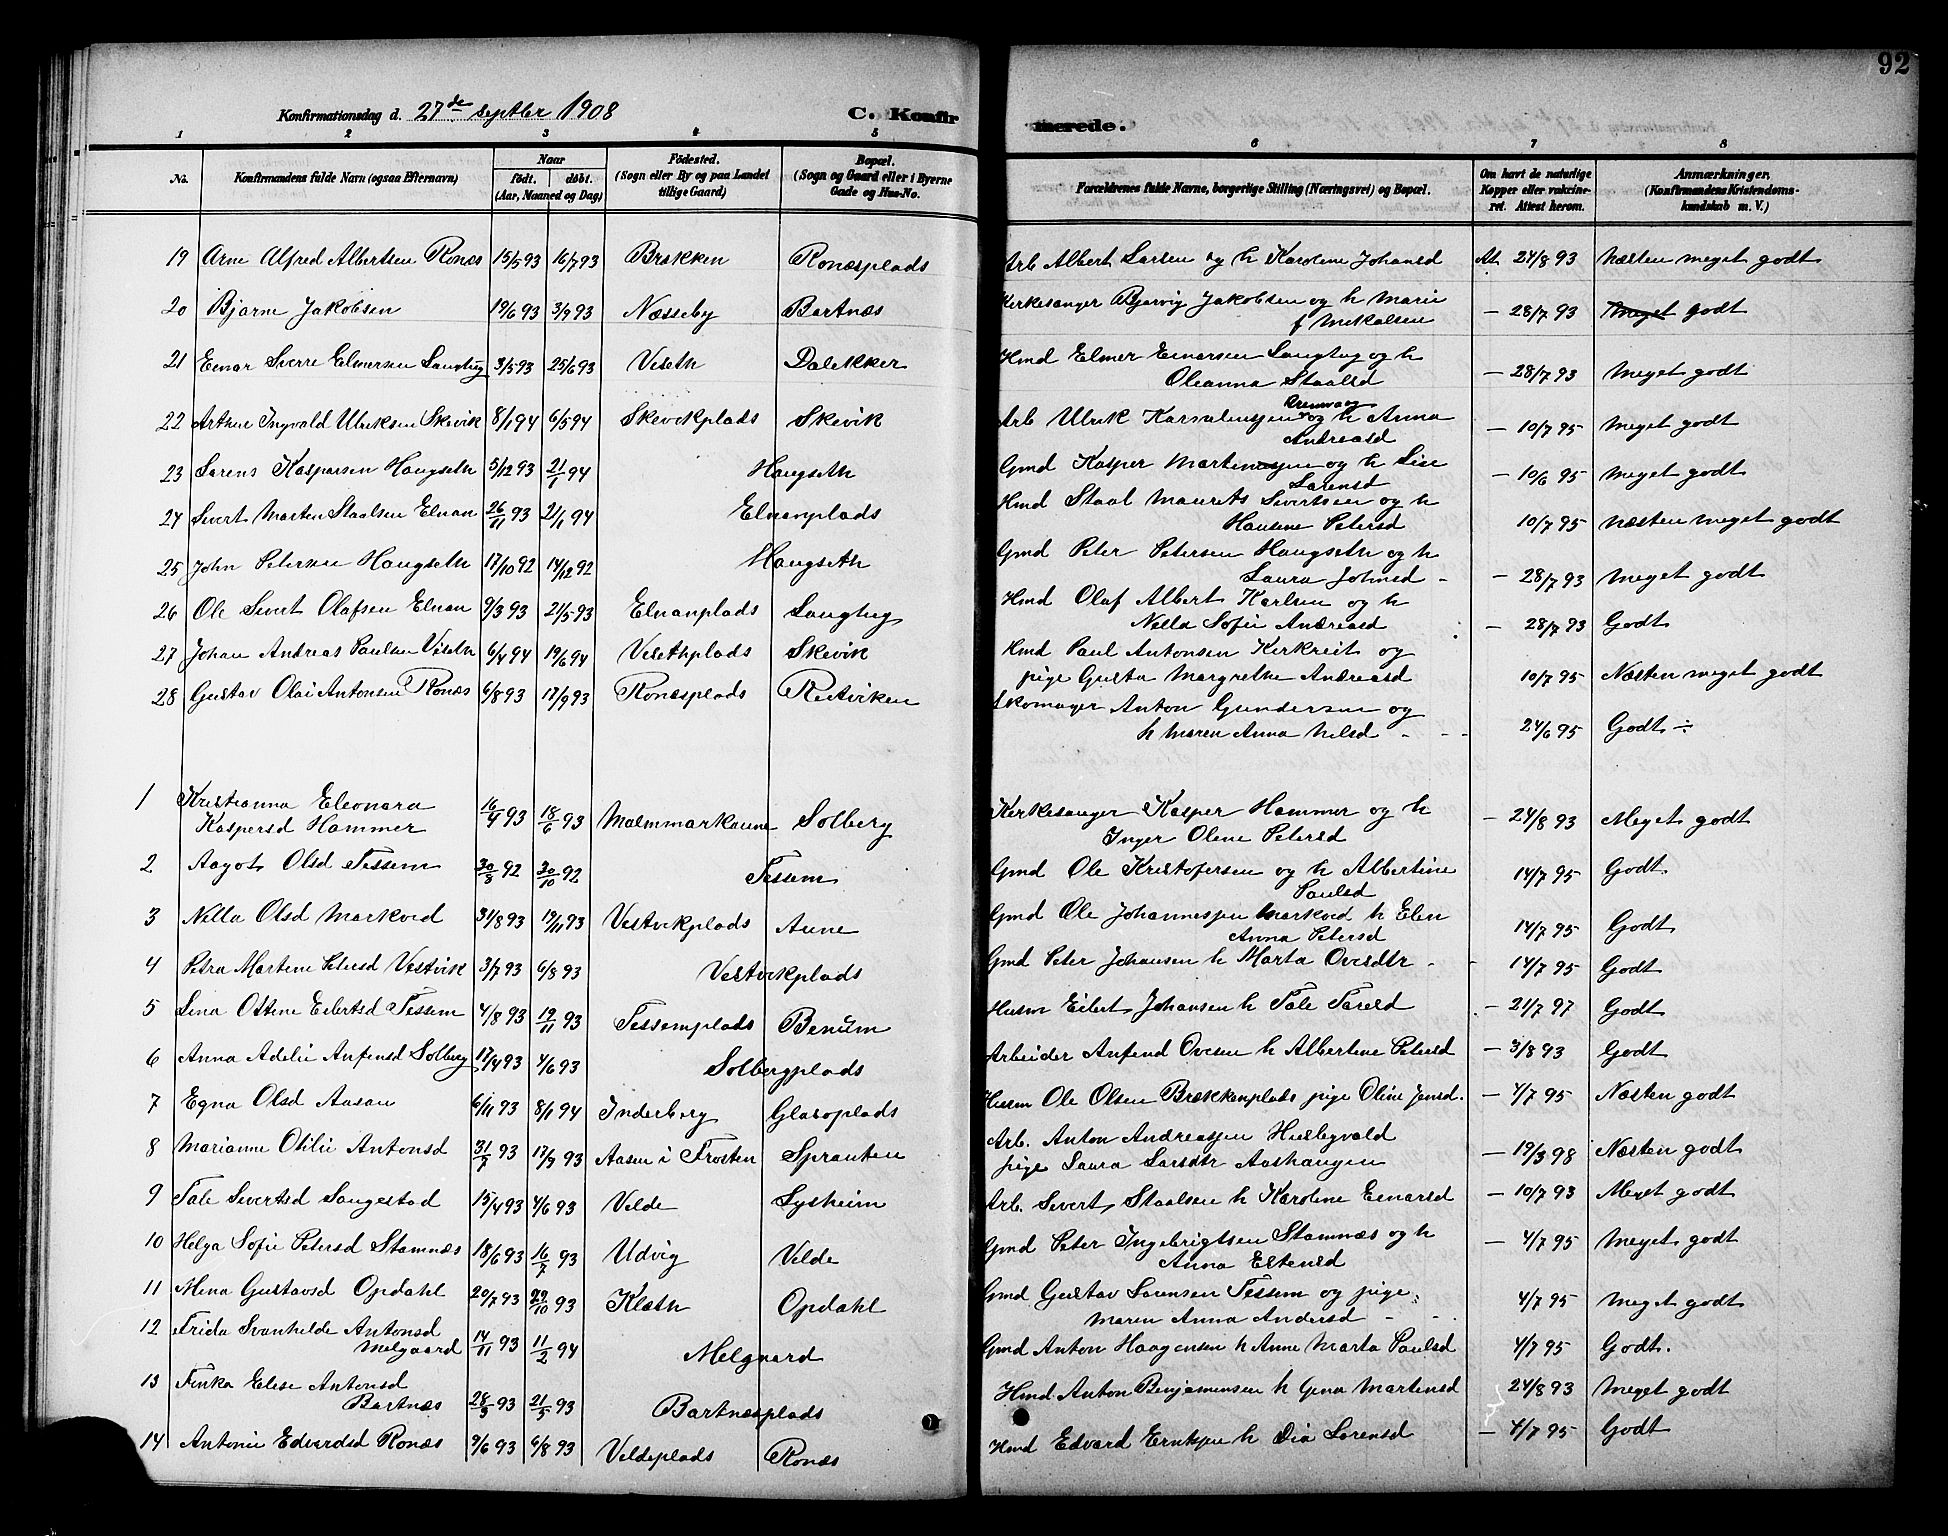 92
Konfirmationsdag d. 27de septber 1908
C. Konfirmerede.
1 2 3 4 5 6 7 8
No.
Konfirmandens fulde Navn (ogsaa Efternavn)
Naar
født. døbt.
(Aar, Maaned og Dag)
Fødested.
(Sogn eller By og paa Landet
tillige Gaard)
Bopæl.
(Sogn og Gaard eller i Byerne
Gade og Hus-No.
Forældrenes fulde Navne, borgerlige Stilling (Næringsvei) og Bopæl.
Om havt de naturlige
Kopper eller vakcine-
ret. Attest herom.
Anmærkninger,
(Konfirmandens Kristendoms-
kundskab m. V.)
19 Arne Alfred Albertsen Ronæs 15/5 93 16/7 93 Brækken Ronæsplads Arb Albert Larsen og h Karoline Johansd At 24/8 93 Næsten meget godt
20 Bjarne Jakobsen 19/6 93 3/9 93 Næsseby Bartnæs Kirkesanger Bjarvig Jakobsen og h Marie
f Mikalsen — 28/7 93 Meget godt
21 Einar Sverre Elmersen Langtug 3/5 93 25/6 93 Viseth Dalekker Hmd Elmer Einarsen Langtug og h
Oleanna Staalsd — 28/7 93 Meget godt
22 Arthur Ingvald Ulriksen Skevik 8/1 94 6/5 94 Skevikplads Skevik Arb Ulrik og h Anna
Andreasd — 10/7 95 Meget godt
23 Larens Kaspersen Haugseth 5/12 93 21/1 94 Haugseth Gmd Kasper Martinusen og h Lise
Larensd — 10/6 95 Meget godt
24 Sivert Martin Staalsen Elnan 26/11 93 21/1 94 Elnanplads Hmd Staal Maurits Sivertsen og h
Hansine Petersd 10/7 95 Næsten meget godt
25 John Petersen Haugseth 17/10 92 14/12 92 Haugseth Gmd Peter Petersen Haugseth og h
Laura Johnsd — 28/7 93 Meget godt
26 Ole Sivert Olafsen Elnan 9/3 93 21/5 93 Elnanplads Langtug Hmd Olaf Albert Karlsen og h
Nella Sofie Andreasd — 28/7 93 Godt
27 Johan Andreas Paulsen Viseth 6/4 94 19/6 94 Visethplads Skevik Hmd Paul Antonsen Kirkreit og
pige Gusta Margrethe Andreasd 10/7 95 Næsten meget godt
28 Gustav Olai Antonsen Ronæs 6/8 93 17/9 93 Ronæsplads Reitviken Skomager Anton Gundersen og
h Maren Anna Nilsd 24/6 95 Godt ÷
1 Kristianna Eleonara
Kaspersd Hammer 16/4 93 18/6 93 Malmmarkaune Solberg Kirkesanger Kasper Hammer og h
Inger Oline Petersd — 24/8 93 Meget godt
2 Aagot Olsd Tessem 30/8 92 30/10 92 Tessem Gmd Ole Kristofersen og h Albertine
Paulsd 14/7 95 Godt
3 Nella Olsd Markvid 31/8 93 19/11 93 Vestvikplads Aune Gmd Ole Johannesen Markvid h Elen
Anna Petersd 14/7 95 Godt
4 Petra Martine Petersd Vestvik 3/7 93 6/8 93 Vestvikplads Gmd Peter Johansen h Marta Ovesdtr - - 14/7 95 Godt
5 Lina Ottine Eilertsd Tessem 4/8 93 19/11 93 Tessemplads Benum Husm Eilert Johansen h Tale Tarèsd — 21/7 97 Godt
6 Anna Adeli Anfinsd Solberg 17/4 93 4/6 93 Solbergplads Arbeider Anfind Ovesen h Albertine Petersd — 3/8 93 Godt
7 Egna Olsd Aasan 6/11 93 8/1 94 Inderberg Glasoplads Husm Ole Olsen Brækkenplads pige Oline Jensd. — 4/7 95 Næsten godt
8 Marianne Otilie Antonsd 31/7 93 17/9 93 Aasen i Frosten Sprauten Arb. Anton Andreassen Husbyvald
pige Laura Larsdtr Aashaugen — 19/3 98 Næsten godt
9 Tale Sivertsd Saugestad 15/4 93 4/6 93 Velde Lysheim Arb. Sivert Staalsen h Karoline Einarsd — 10/7 93 Meget godt
10 Helga Sofie Petersd Stamnæs 18/6 93 16/7 93 Udvig Velde Gmd Peter Ingebrigtsen Stamnæs og h
Anna Eltensd — 4/7 95 Meget godt
11 Mina Gustavsd Opdahl 20/7 93 29/10 93 Klæth Opdahl Gmd Gustav Sørensen Tessem og pige
Maren Anna Andersd 4/7 95 Meget godt
12 Frida Svanhilde Antonsd
Melgaard 14/11 93 11/2 94 Melgaard Gmd Anton Haagensen h Anne Marta Paulsd 4/7 95 Godt.
13 Finka Elise Antonsd
Bartnæs 28/3 93 21/5 93 Bartnæsplads Hmd Anton Benjaminsen h Gina Martinsd 24/8 93 Meget godt
14 Antonie Edvardsd Ronæs 9/6 93 6/8 93 Veldeplads Ronæs Hmd Edvard Eriksen h Dia Lorensd — 4/7 95 Godt